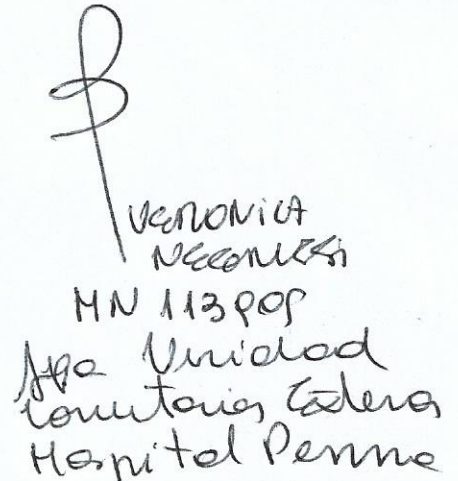 VERONICA
MN 113909
Jefa Unidad
Consultorios Externos
Hospital Penna